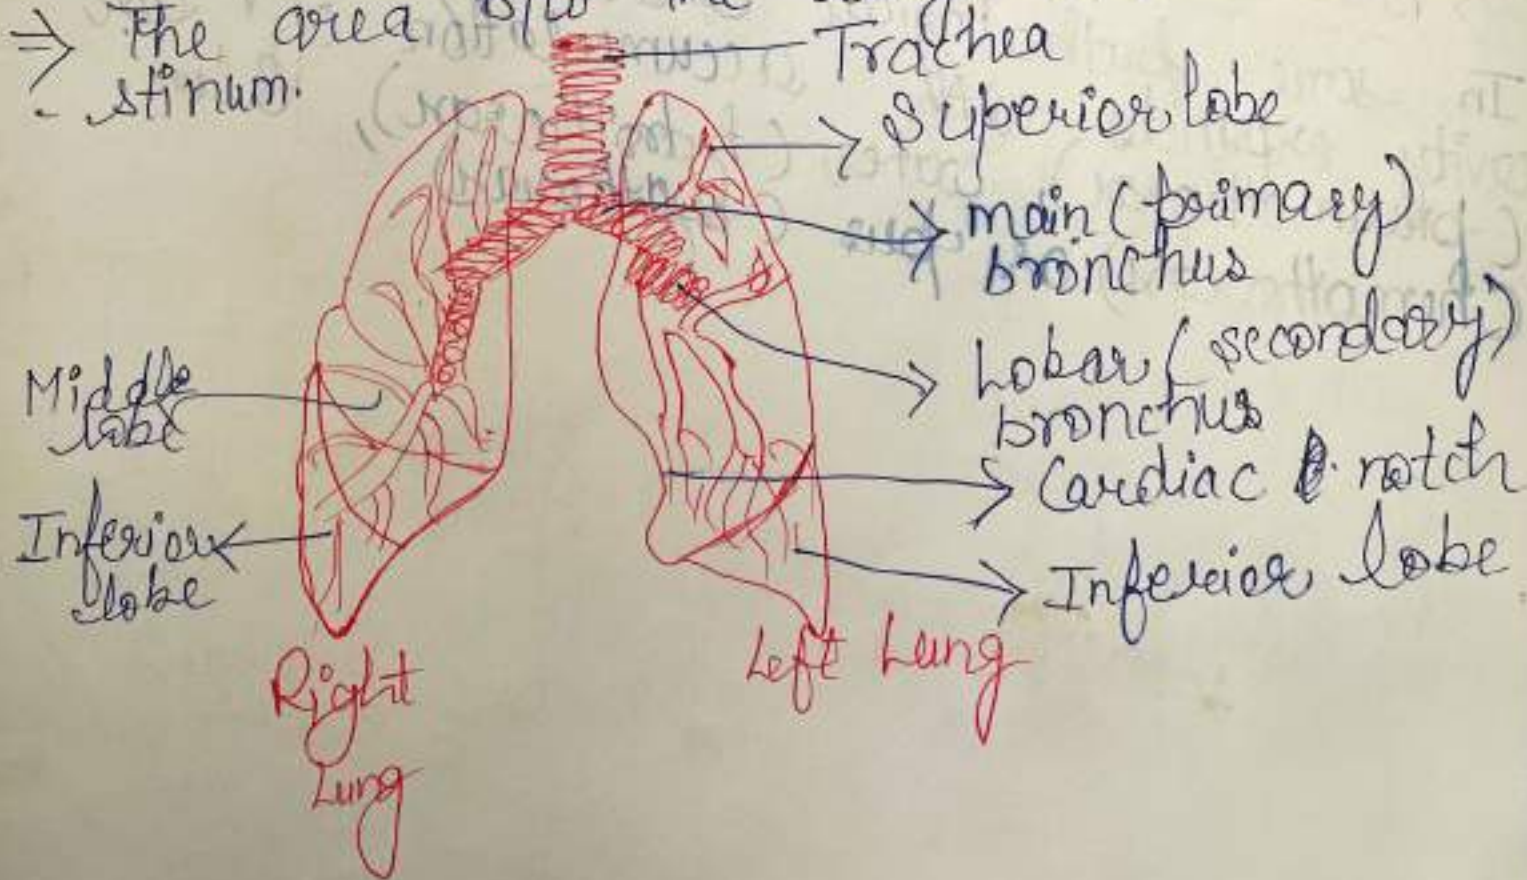 ⇒ The area b/w the
stinum.
Trachea
Superior lobe
main (primary)
bronchus
Lobar (secondary)
bronchus
Cardiac notch
Inferior lobe
Middle
lobe
Inferior
lobe
Right
Lung
Left Lung